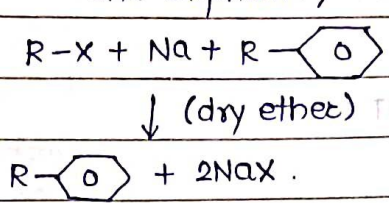 R-X + Na + R-⌬
↓ (dry ether)
R-⌬ + 2NaX.